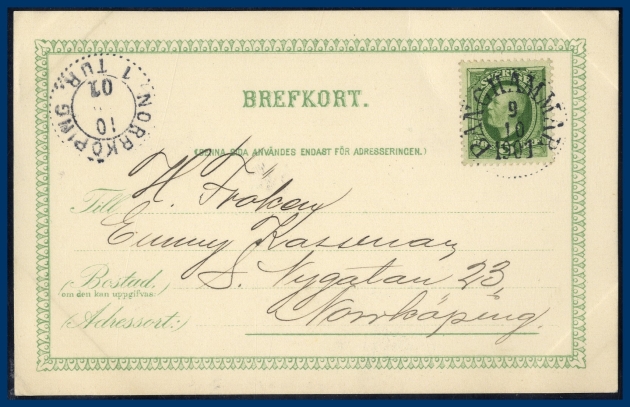 NORRKÖPING
1 TUR.
10
01
BREFKORT.
BÅNGHAMMAR
9
10
1901
(DENNA SIDA ANVÄNDES ENDAST FÖR ADRESSERINGEN.)
Till H. Fröken
Emmy
S. Nygatan 23,
(Bostad.
om den kan uppgifvas:)
(Adressort:) Norrköping.